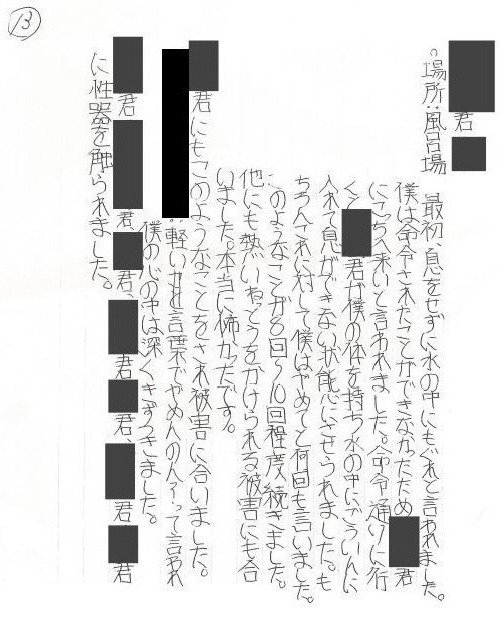 13
君
。場所:風呂場 最初、息をせずに水の中にもぐれと言われました。
僕は命令されたことができなかったため 君
にこっちへ来いと言われました。命令通りに行
くと 君が僕の体を持ち水の中にごういんに
入れて息ができない状態にさせられました。も
ちろんそれに対して僕はやめてと何回も言いました。
このようなことが8回～10回程度続きました。
他にも熱いねっとうをかけられる被害にも合
いました。本当に怖かったです。
君にもこのようなことをされ被害に合いました。
軽い 言葉でやめんの って言われ
僕の心の中は深くきずつきました。
君 君 君、 君 君、 君 君
に性器を触られました。